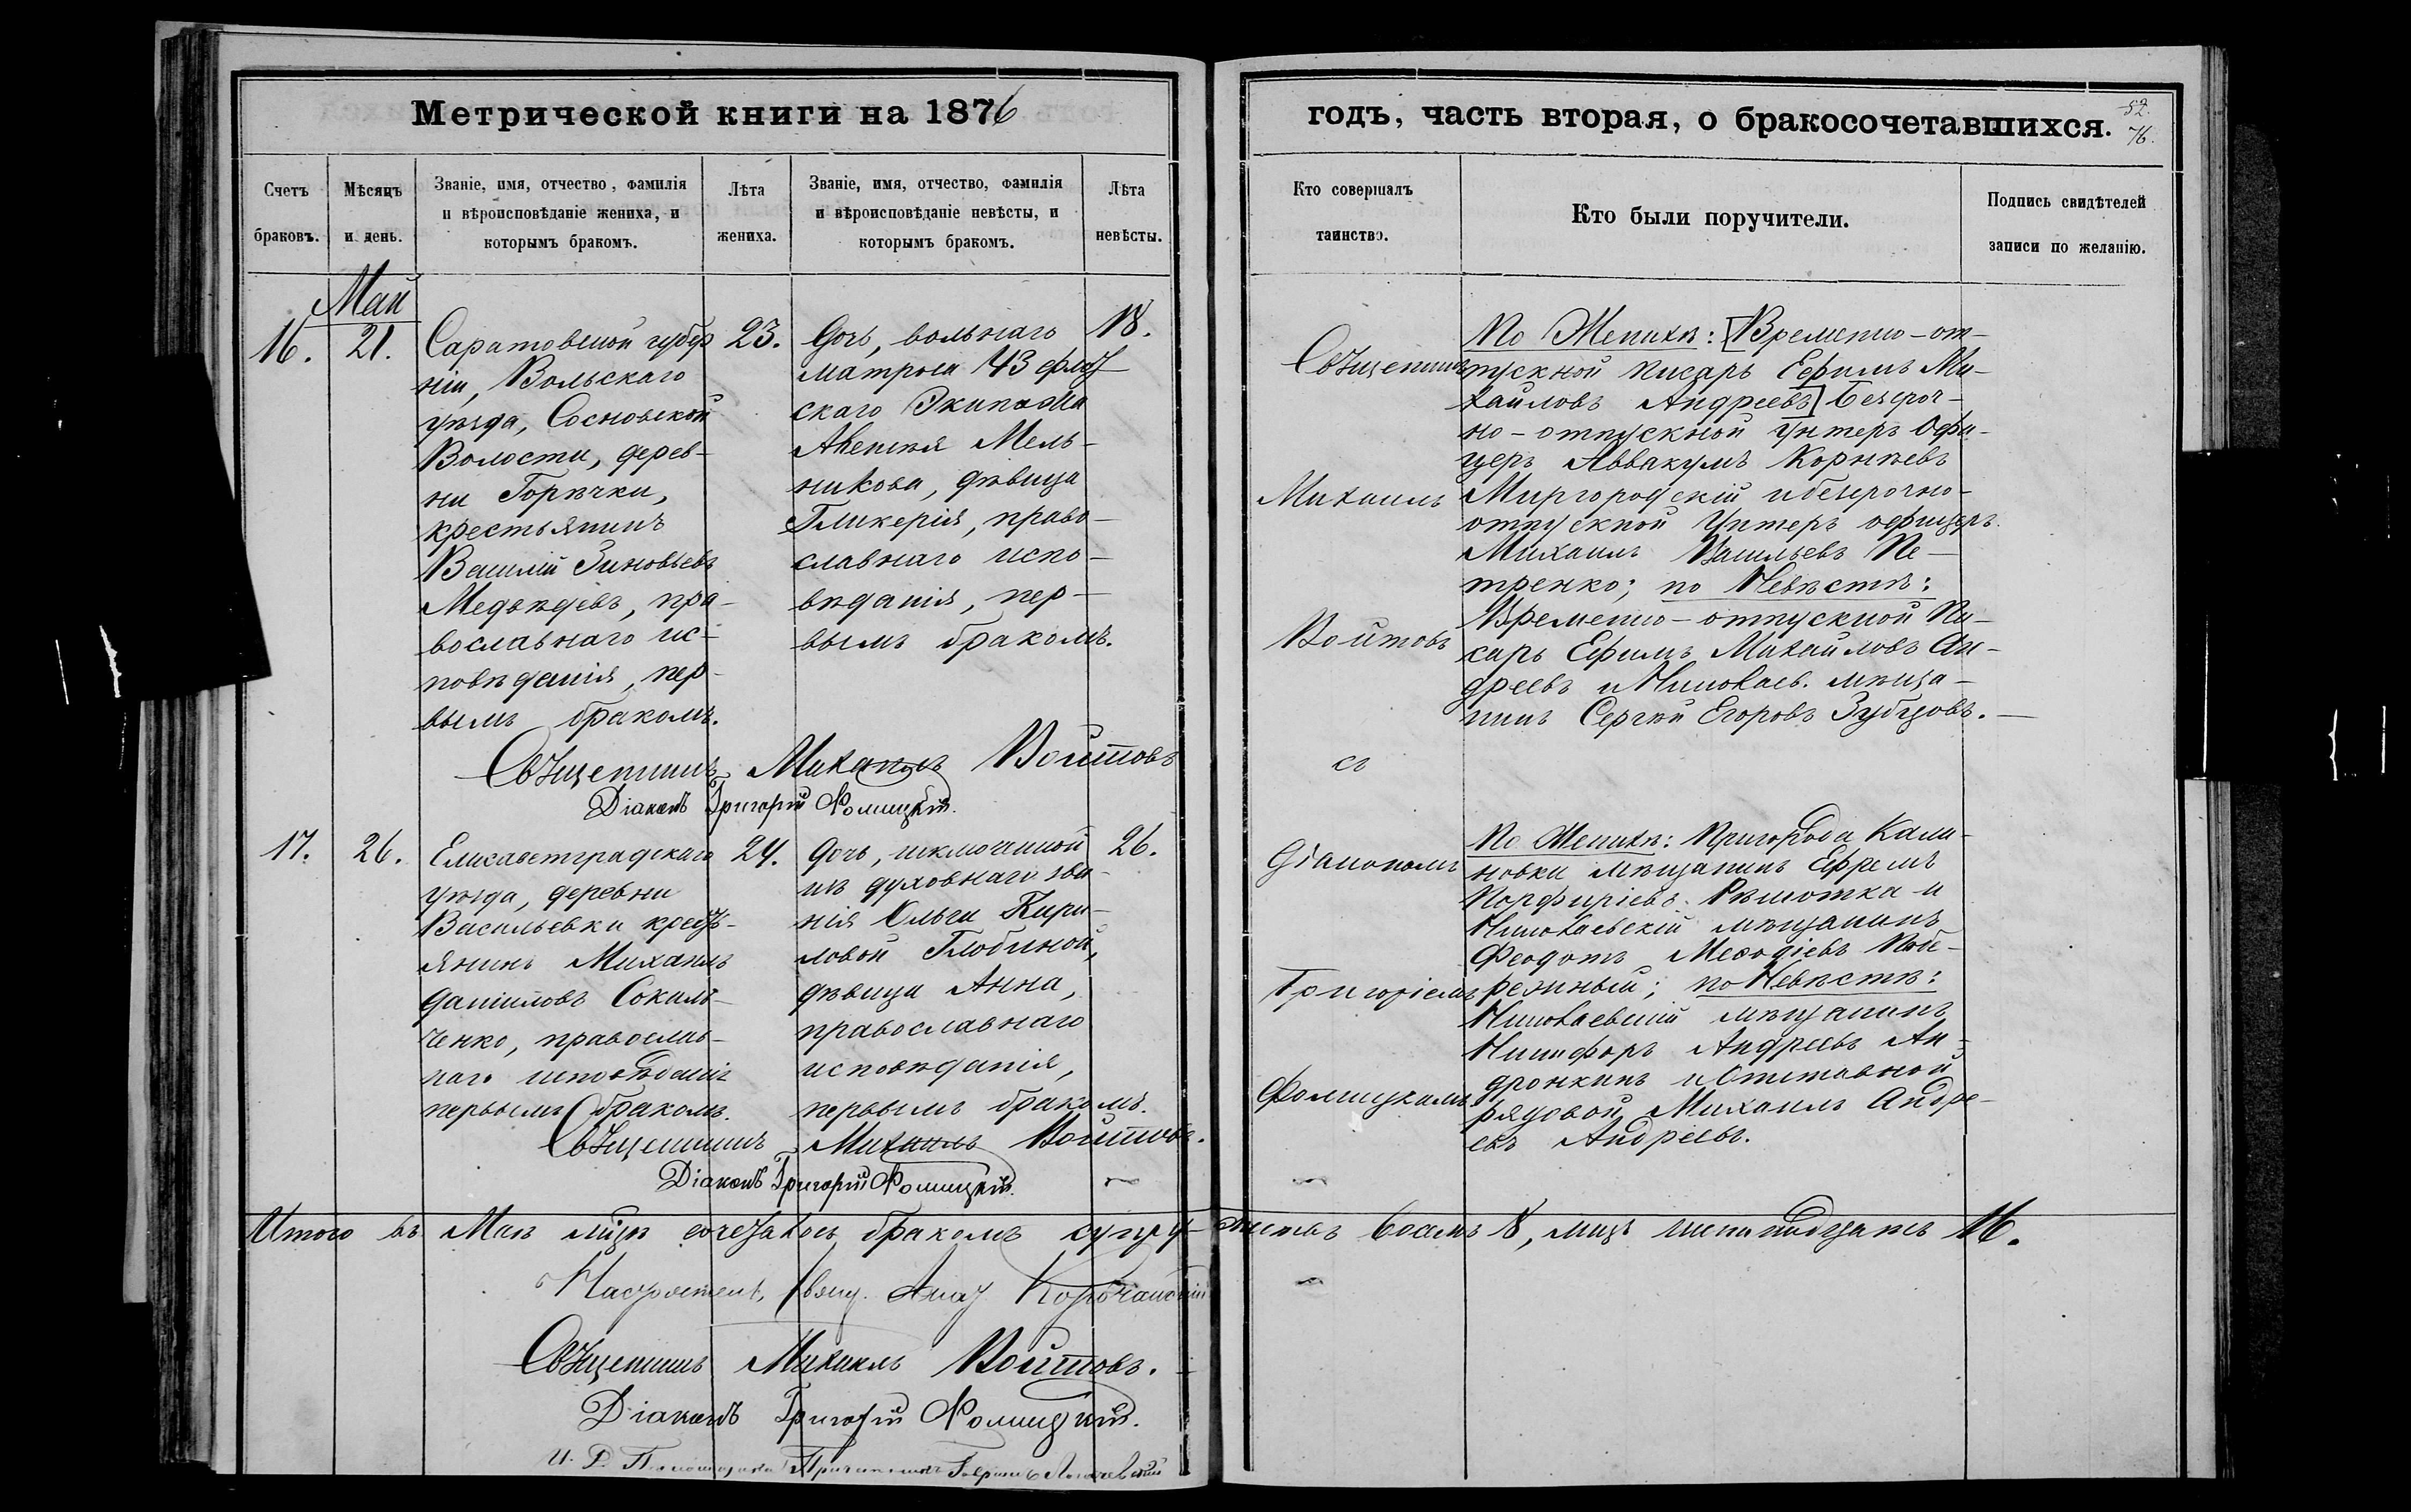 Метрической книги на 1876
годъ, часть вторая, о бракосочетавшихся.
52.
76.
Счетъ браковъ.
Мѣсяцъ и день.
Званіе, имя, отчество, фамилія
и вѣроисповѣданіе жениха, и
которымъ бракомъ.
Лѣта жениха.
Званіе, имя, отчество, фамилія
и вѣроисповѣданіе невѣсты, и
которымъ бракомъ.
Лѣта невѣсты.
Кто совершалъ
таинство.
Кто были поручители.
Подпись свидѣтелей
записи по желанію.
Май
16.
21.
Саратовской губер
ніи, Вольскаго
уѣзда, Сосновской
Волости, дерев-
ни Горѣчки,
крестьянинъ
Василій Зиновьевъ
Медвѣдевъ, пра-
вославнаго ис-
повѣданія, пер-
вымъ бракомъ.
23.
Дочь, вольнаго
матроса 43 флот
скаго Экипажа
Мель-
никова, дѣвица
Гликерія, право-
славнаго испо-
вѣданія, пер-
вымъ бракомъ.
18.
Священникъ Михаилъ Войтовъ
Діаконъ Григорій Фомицкій.
Священникъ
Михаилъ
Войтовъ
съ
По Женихѣ: [Временно-от-
пускной писарь Ефимъ Ми-
хайловъ Андреевъ] безсроч-
но-отпускной Унтеръ Офи-
церъ Аввакумъ Корнѣевъ
Миргородскій и безсрочно-
отпускной Унтеръ офицеръ
Михаилъ Васильевъ Пе-
тренко; по Невѣстѣ:
Временно-отпускной Пи-
сарь Ефимъ Михайловъ Ан-
дреевъ и Николаев. мѣща-
нинъ Сергѣй Егоровъ Зубцовъ.
17.
26.
Елисаветградскаго
уѣзда, деревни
Васильевки крестъ-
янинъ Михаилъ
Даніиловъ Сокаль-
ченко, православ-
наго исповѣданія
первымъ бракомъ.
24.
Дочь, исключенной
изъ духовнаго зва-
нія Ольги Кири-
ловой Глобиной,
дѣвица Анна,
православнаго
исповѣданія,
первымъ бракомъ.
26.
Священникъ Михаилъ Войтовъ.
Діаконъ Григорій Фомицкій.
Діакономъ
Григоріемъ
Фомицкимъ
По Женихѣ: Пригорода Кали-
новки мѣщанинъ Ефремъ
Порфиріевъ Рѣшотка и
Николаевскій мѣщанинъ
Феодотъ Меѳодіевъ Побе-
резный; по Невѣстѣ:
Николаевскій мѣщанинъ
Никифоръ Андреевъ Ан-
дронкинъ и Отставной
рядовой Михаилъ Андре-
евъ Андреевъ.
Итого въ Маѣ мѣцѣ сочеталось бракомъ супру-жествъ восемь 8, лицъ шестнадцать 16.
Настоятель, Свящ.
Священникъ Михаилъ Войтовъ.
Діаконъ Григорій Фомицкій.
И. Д.